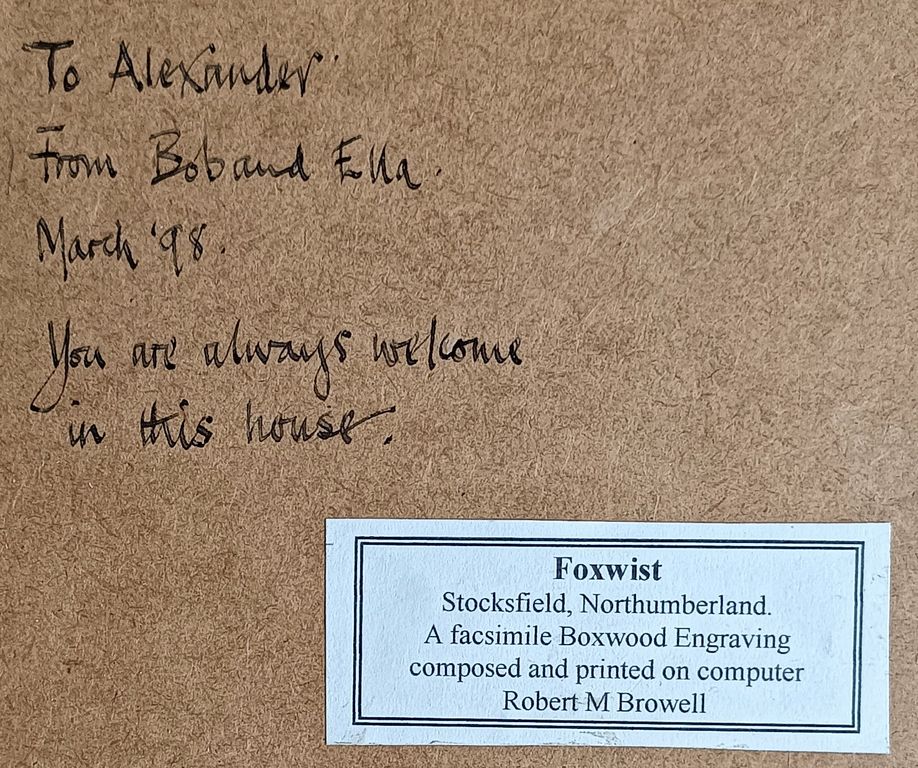 To Alexander
From Bob and Ella.
March '98.
You are always welcome
in this house.
Foxwist
Stocksfield, Northumberland.
A facsimile Boxwood Engraving
composed and printed on computer
Robert M Browell